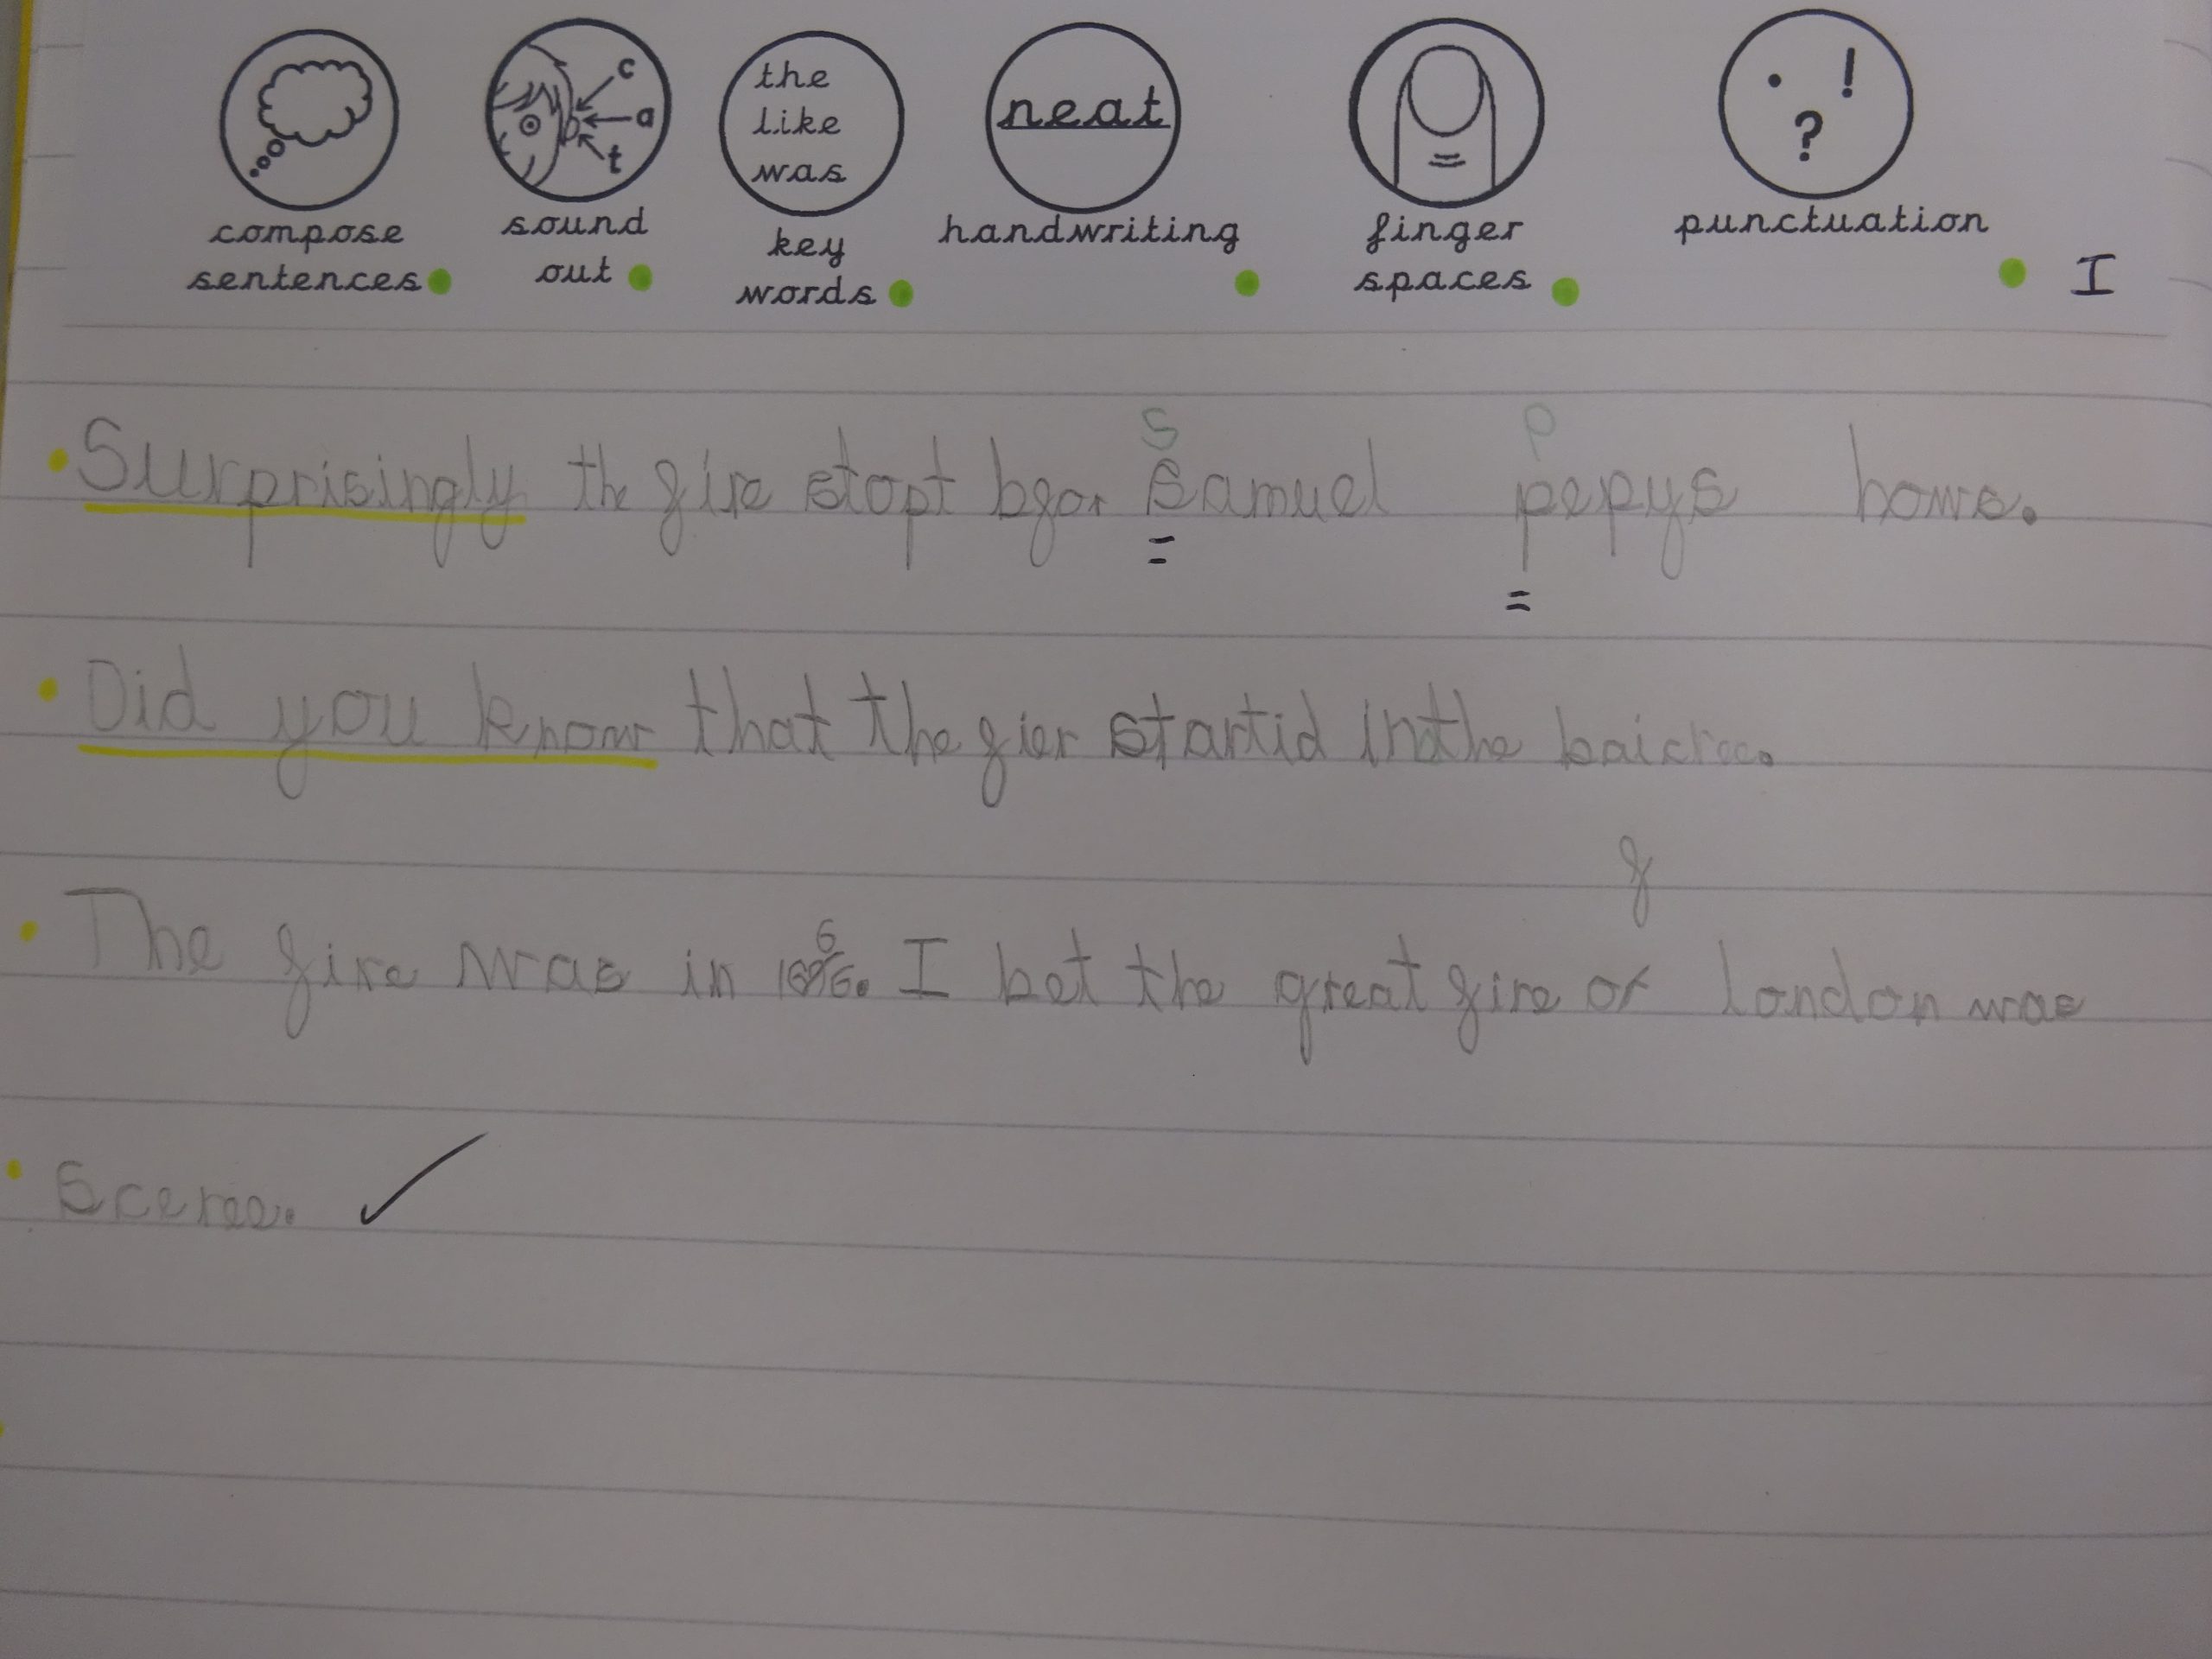 c
a
t
the
like
was
neat
. !
?
compose
sentences
sound
out
key
words
handwriting
finger
spaces
punctuation
I
S P
Surprisingly the fire stopt bfor samuel pepys home.
Did you know that the fier startid in the
f
6
The fire was in I bet the great fire of london was